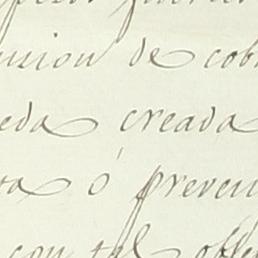 usion de cob
eda creada
ta ó preven
con tal